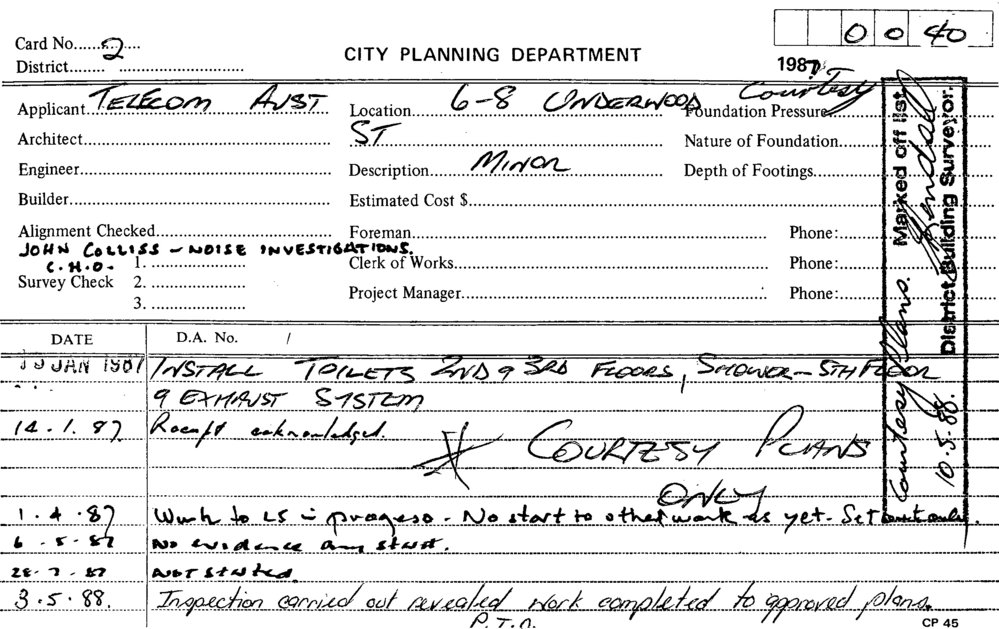 0 0 40
Card No. 2
District
CITY PLANNING DEPARTMENT
1987
Courtesy
Applicant TELECOM AUST
Location 6-8 UNDERWOOD
Foundation Pressure
Architect
ST
Nature of Foundation
Engineer
Description MINOR
Depth of Footings
Builder
Estimated Cost $
Alignment Checked
Foreman
Phone:
JOHN COLLISS - NOISE INVESTIGATIONS.
C.H.O. 1.
Clerk of Works
Phone:
Survey Check 2.
3.
Project Manager
Phone:
Courtesy Plans. Marked off list
District Building Surveyor.
10.5.88.
DATE
D.A. No. /
19 JAN 1987 INSTALL TOILETS 2ND & 3RD FLOORS, SHOWER - 5TH FLOOR
& EXHAUST SYSTEM
14.1.87 Receipt acknowledged.
* COURTESY PLANS
ONLY
1.4.87 Work to L5 in progress - No start to other work as yet.
6.5.87 No evidence any start.
28.7.87 NOT Started
3.5.88. Inspection carried out revealed work completed to approved plans.
P.T.O.
CP 45